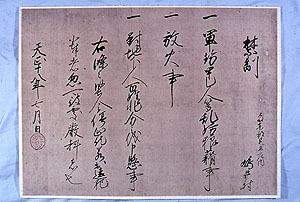 禁制
一 軍勢甲乙人等乱妨狼藉事
一 放火事
一 対地下人百姓非分儀申懸事
右條々堅令停止訖若違犯
輩者忽可被處嚴科者也
天正十八年七月日